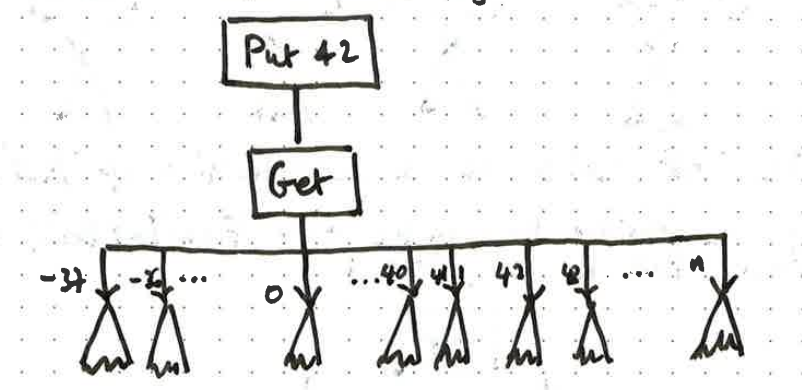 Put 42
Get
-37 -36 ... 0 ...40 41 42 43 .... n